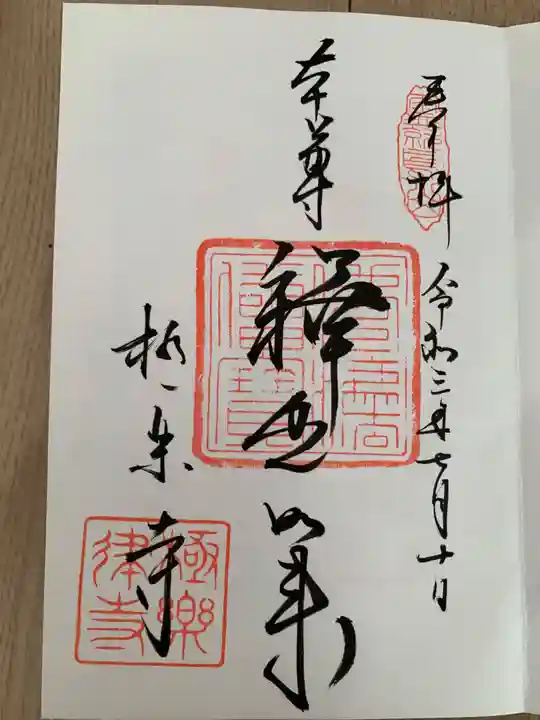 奉拝 令和三年七月十日
本尊 釋迦如来
極楽寺
極樂律寺